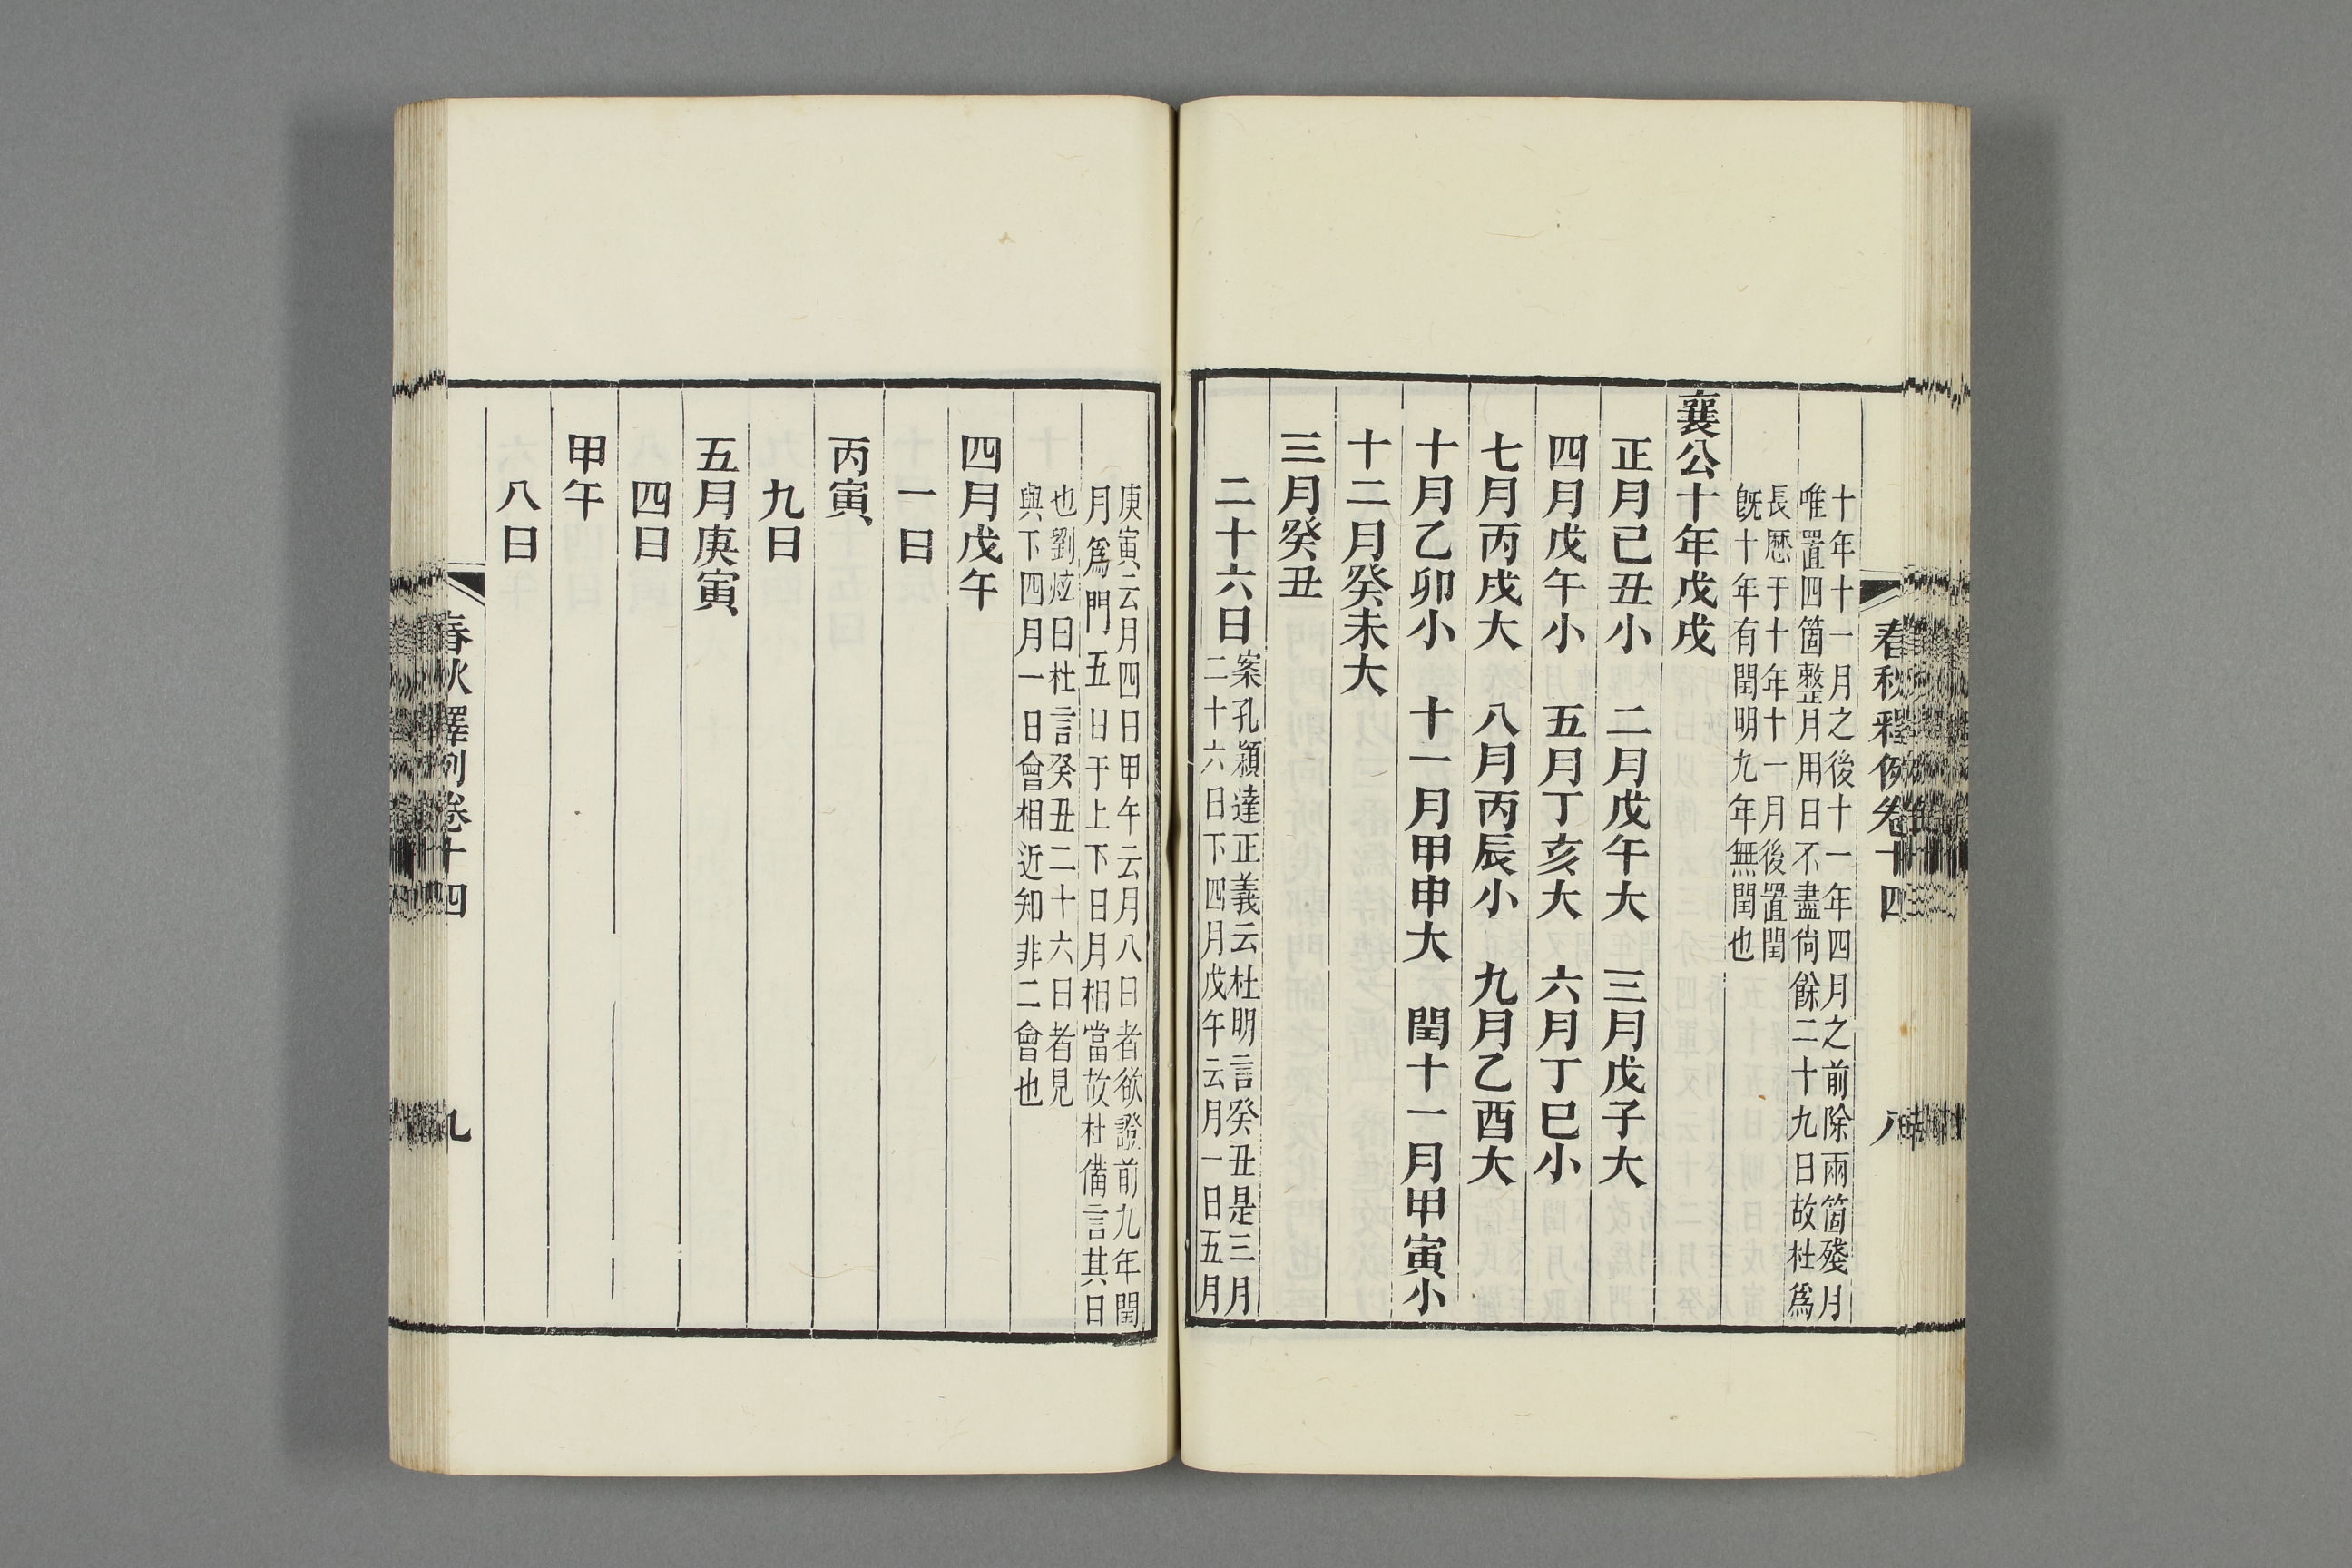 十年十一月之後十一年四月之前除兩箇殘月
唯置四箇整月用日不盡尙餘二十九日故杜爲
長厯于十年十一月後置閏
旣十年有閏明九年無閏也
襄公十年戊戌
正月已丑小　二月戊午大　三月戊子大
四月戊午小　五月丁亥大　六月丁巳小
七月丙戌大　八月丙辰小　九月乙酉大
十月乙卯小　十一月甲申大　閏十一月甲寅小
十二月癸未大
三月癸丑
二十六日案孔穎達正義云杜明言癸丑是三月
二十六日下四月戊午云月一日五月
春秋釋例卷十四
八
庚寅云月四日甲午云月八日者欲證前九年閏
月爲門五日于上下日月相當故杜備言其日
也劉炫曰杜言癸丑二十六日者見
與下四月一日會相近知非二會也
四月戊午
一日
丙寅
九日
五月庚寅
四日
甲午
八日
春秋釋例卷十四
九